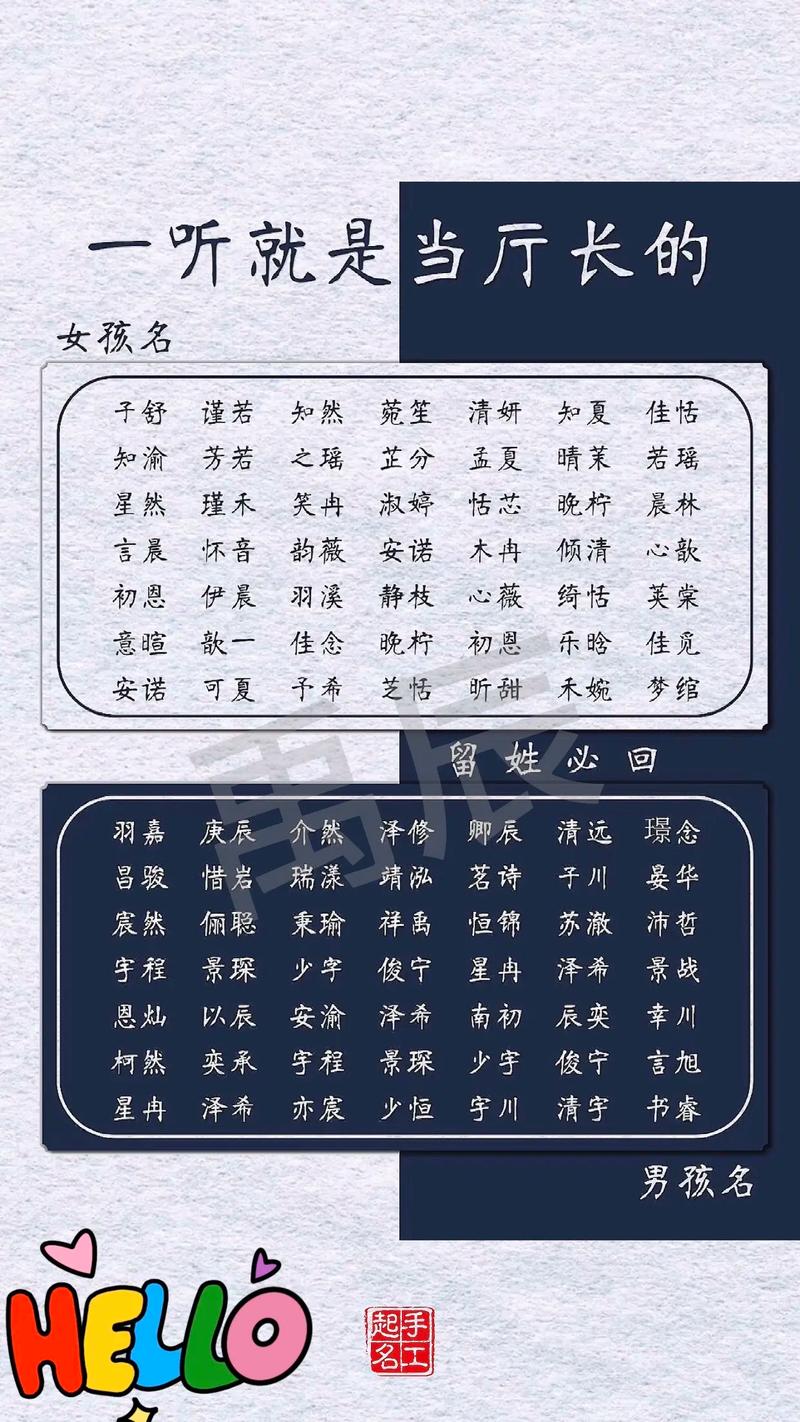 一听就是当厅长的
女孩名
子舒 谨若 知然 菀笙 清妍 知夏 佳恬
知渝 芳若 之瑶 芷分 孟夏 晴茉 若瑶
星然 瑾禾 笑冉 淑婷 恬芯 晚柠 晨林
言晨 怀音 韵薇 安诺 木冉 倾清 心歆
初恩 伊晨 羽溪 静枝 心薇 绮恬 芙棠
意暄 歆一 佳念 晚柠 初恩 乐晗 佳觅
安诺 可夏 予希 芝恬 昕甜 禾婉 梦绾
禹辰
留姓必回
羽嘉 庚辰 介然 泽修 卿辰 清远 璟念
昌骏 惜岩 瑞漾 靖泓 茗诗 子川 晏华
宸然 俪聪 秉瑜 祥禹 恒锦 苏澈 沛哲
宇程 景琛 少字 俊宁 星冉 泽希 景战
恩灿 以辰 安渝 泽希 南初 辰奕 幸川
柯然 奕承 宇程 景琛 少宇 俊宁 言旭
星冉 泽希 亦宸 少恒 宇川 清宇 书睿
男孩名
HELLO
手工起名